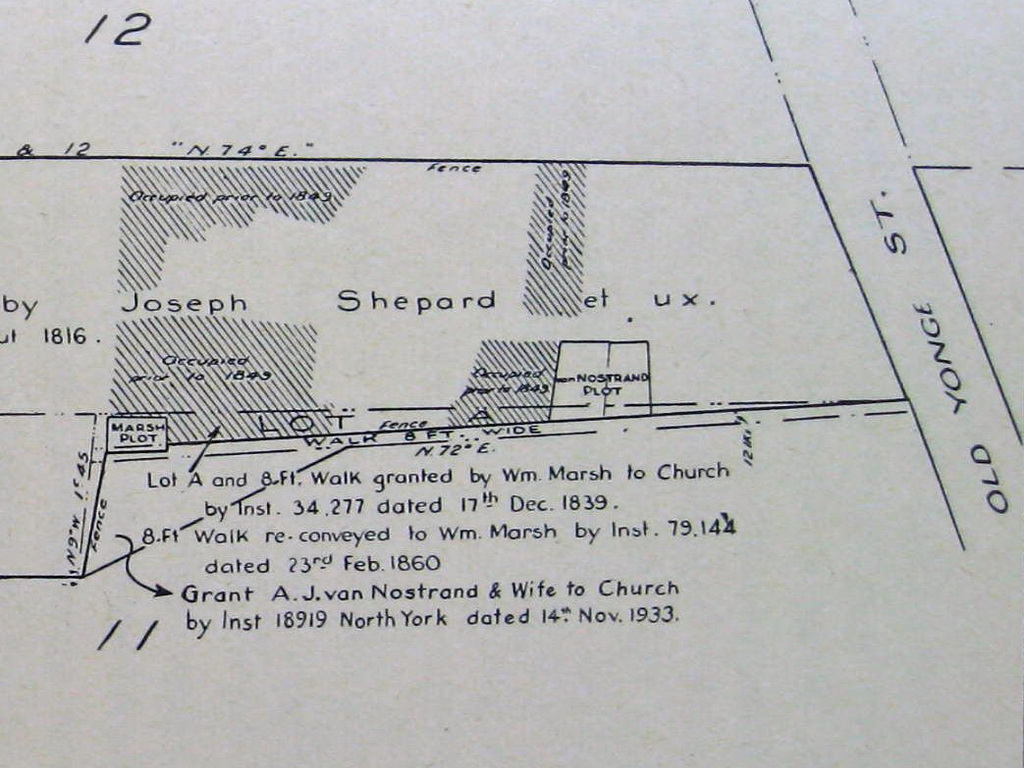 12
& 12 "N. 74° E."
Fence
Occupied prior to 1849
Occupied
prior to 1849
ST.
by Joseph Shepard et ux.
1816.
YONGE
OLD
Occupied
prior to 1849
Occupied
prior to 1849
van NOSTRAND
PLOT
MARSH
PLOT
LOT A
Fence
WALK 8 FT. WIDE
N. 72° E.
Fence
Lot A and 8-Ft. Walk granted by Wm. Marsh to Church
by Inst. 34,277 dated 17th Dec. 1839.
8-Ft Walk re-conveyed to Wm. Marsh by Inst. 79,144
dated 23rd Feb. 1860
Grant A. J. van Nostrand & Wife to Church
by Inst 18919 North York dated 14th Nov. 1933.
11